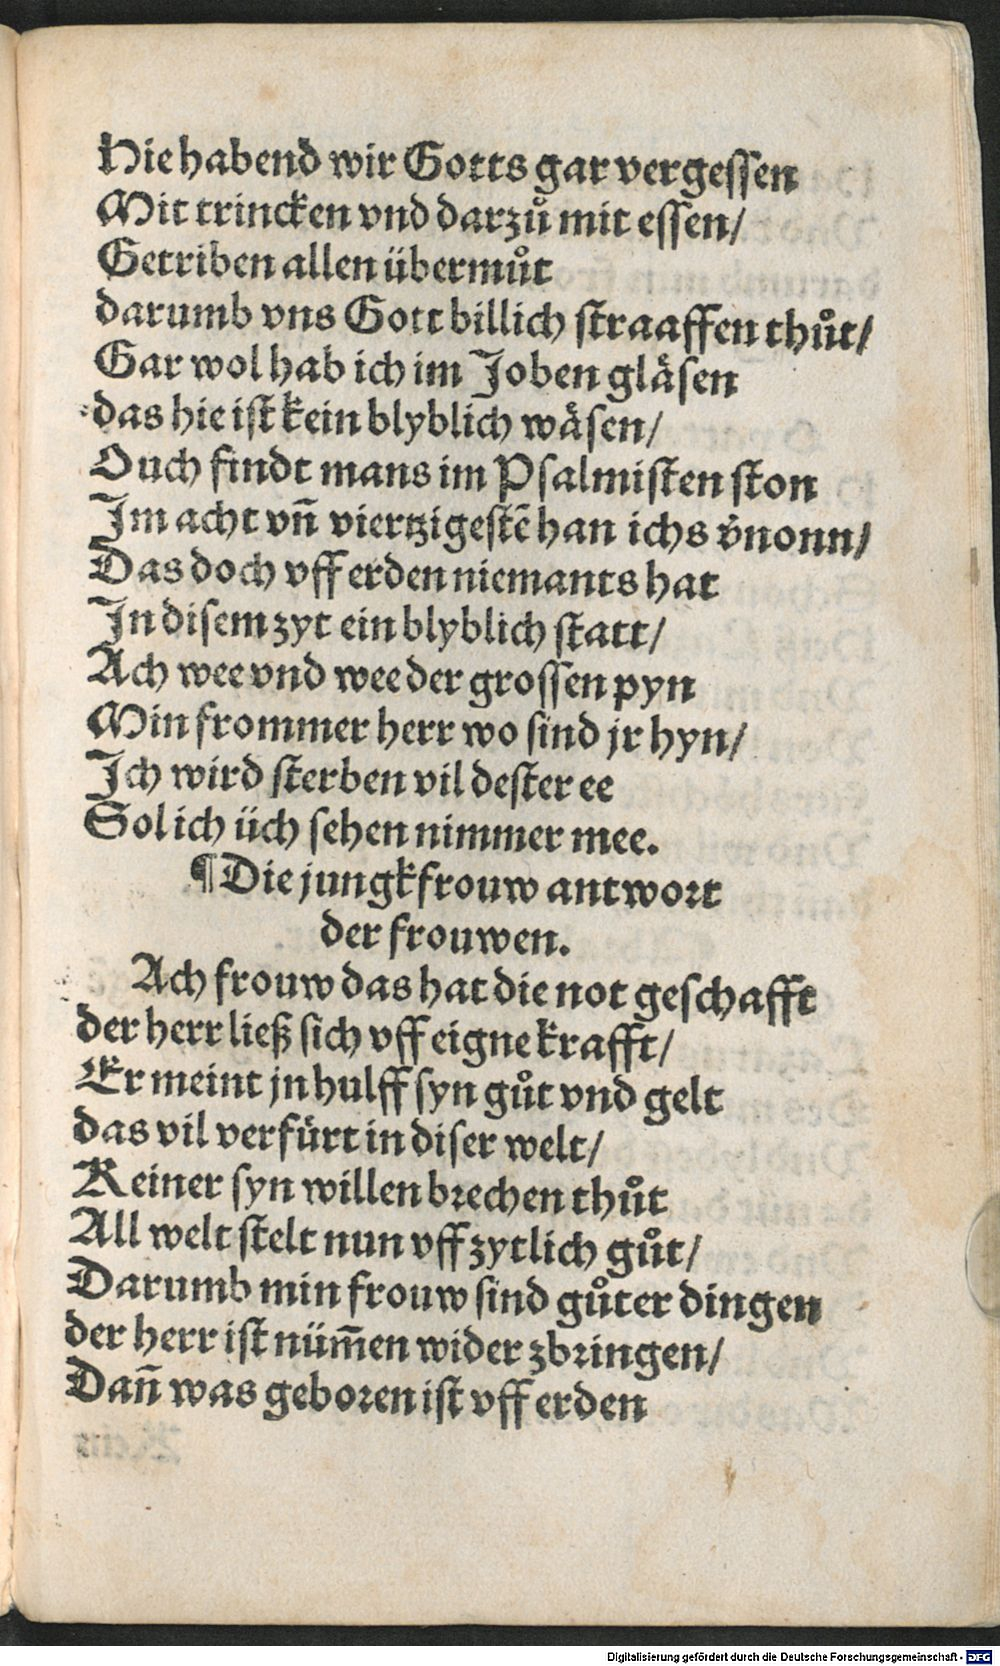 Hie habend wir Gotts gar vergessen
Mit trincken vnd darzuͦ mit essen/
Getriben allen übermuͦt
darumb vns Gott billich straaffen thuͦt/
Gar wol hab ich im Joben glaͤsen
das hie ist kein blyblich waͤsen/
Ouch findt mans im Psalmisten ston
Im acht vn̄ viertzigestē han ichs v̄nonn/
Das doch vff erden niemants hat
In disem zyt ein blyblich statt/
Ach wee vnd wee der grossen pyn
Min frommer herr wo sind jr hyn/
Ich wird sterben vil dester ee
Sol ich üch sehen nimmer mee.
¶ Die jungkfrouw antwort
der frouwen.
Ach frouw das hat die not geschafft
der herr ließ sich vff eigne krafft/
Er meint jn hulff syn guͦt vnd gelt
das vil verfürt in diser welt/
Keiner syn willen brechen thuͦt
All welt stelt nun vff zytlich guͦt/
Darumb min frouw sind guͦter dingen
der herr ist nüm̄en wider zbringen/
Dan̄ was geboren ist vff erden
Digitalisierung gefördert durch die Deutsche Forschungsgemeinschaft - DFG